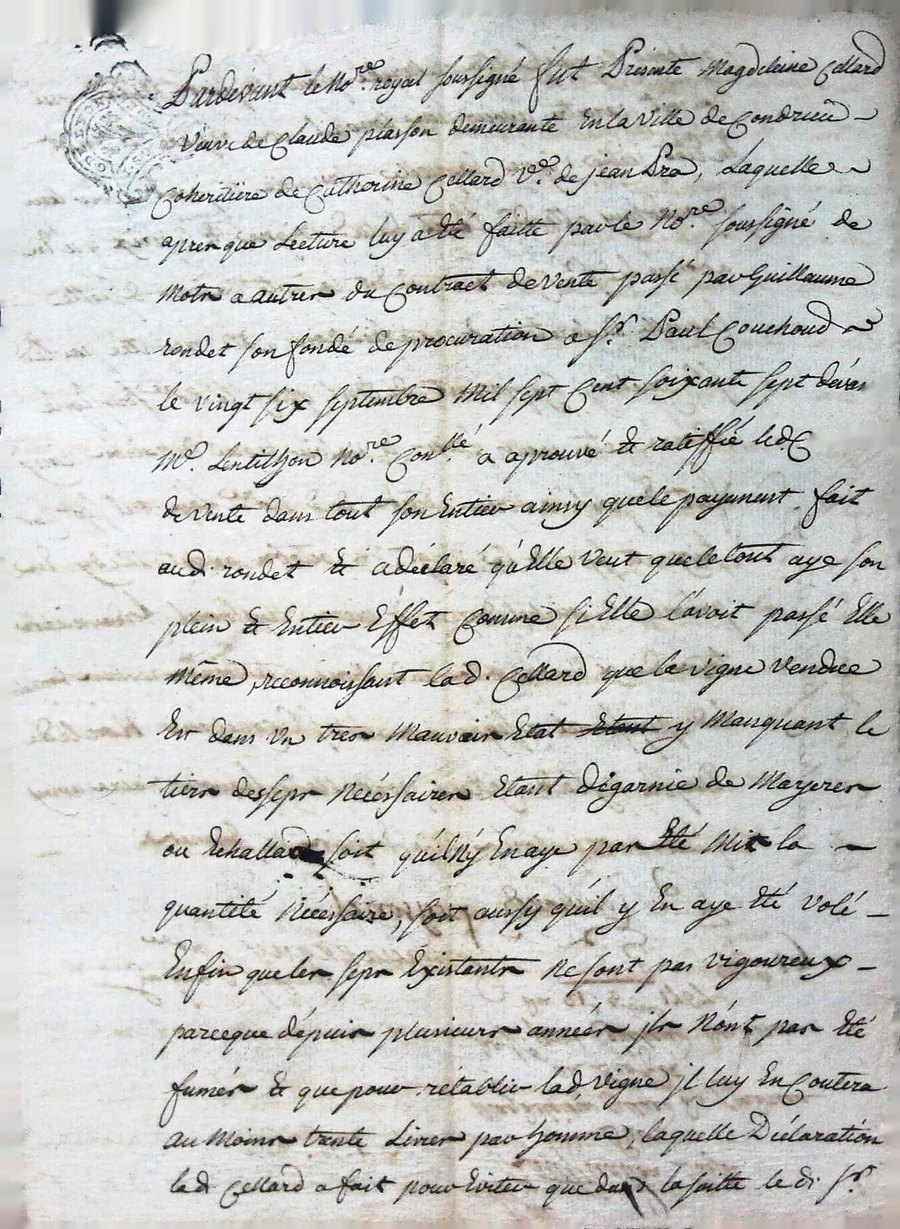 Pardevant le No.re royal soussigné fut Présente Magdeleine Cellard
Veuve de Claude plasson demeurante En la Ville de Condrieu
Coheritiere de Catherine Cellard V.e de jean Pra, Laquelle
apres que Lecture luy a été faitte par le No.re soussigné de
Mots a autres du Contract de Vente passé par Guillaume
rondet son fondé de procuration a S.r Paul Couchoud
le vingt six septembre Mil sept Cent soixante sept devan
M.e Lentilhon No.re Con.llé a aprouvé & ratiffié led. C
de Vente dans tout son Entier ainsy que le payement fait
aud. rondet & a déclaré qu'Elle Veut que le tout aye son
plein & Entier Effet Comme si Elle l'avoit passé Elle
Même, reconnoissant lad. Cellard que la vigne Vendue
Est dans Un tres Mauvais Etat Etant y Manquant le
tiers des seps Nécéssaires Etant dégarnie de Mayeres
ou Echallad soit qu'il N'y En aye pas Eté Mit la
quantité Nécéssaire, soit aussy qu'il y En aye Eté Volé
Enfin que les seps Existants Ne sont pas vigoureux
parceque dépuis plusieurs années jls N'ont pas Eté
fumés & que pour rétablir lad. Vigne jl luy En Coutera
au Moins trente Livres par homme, laquelle Déclaration
lad. Cellard a fait pour Eviter que dans la suitte le d. S.r